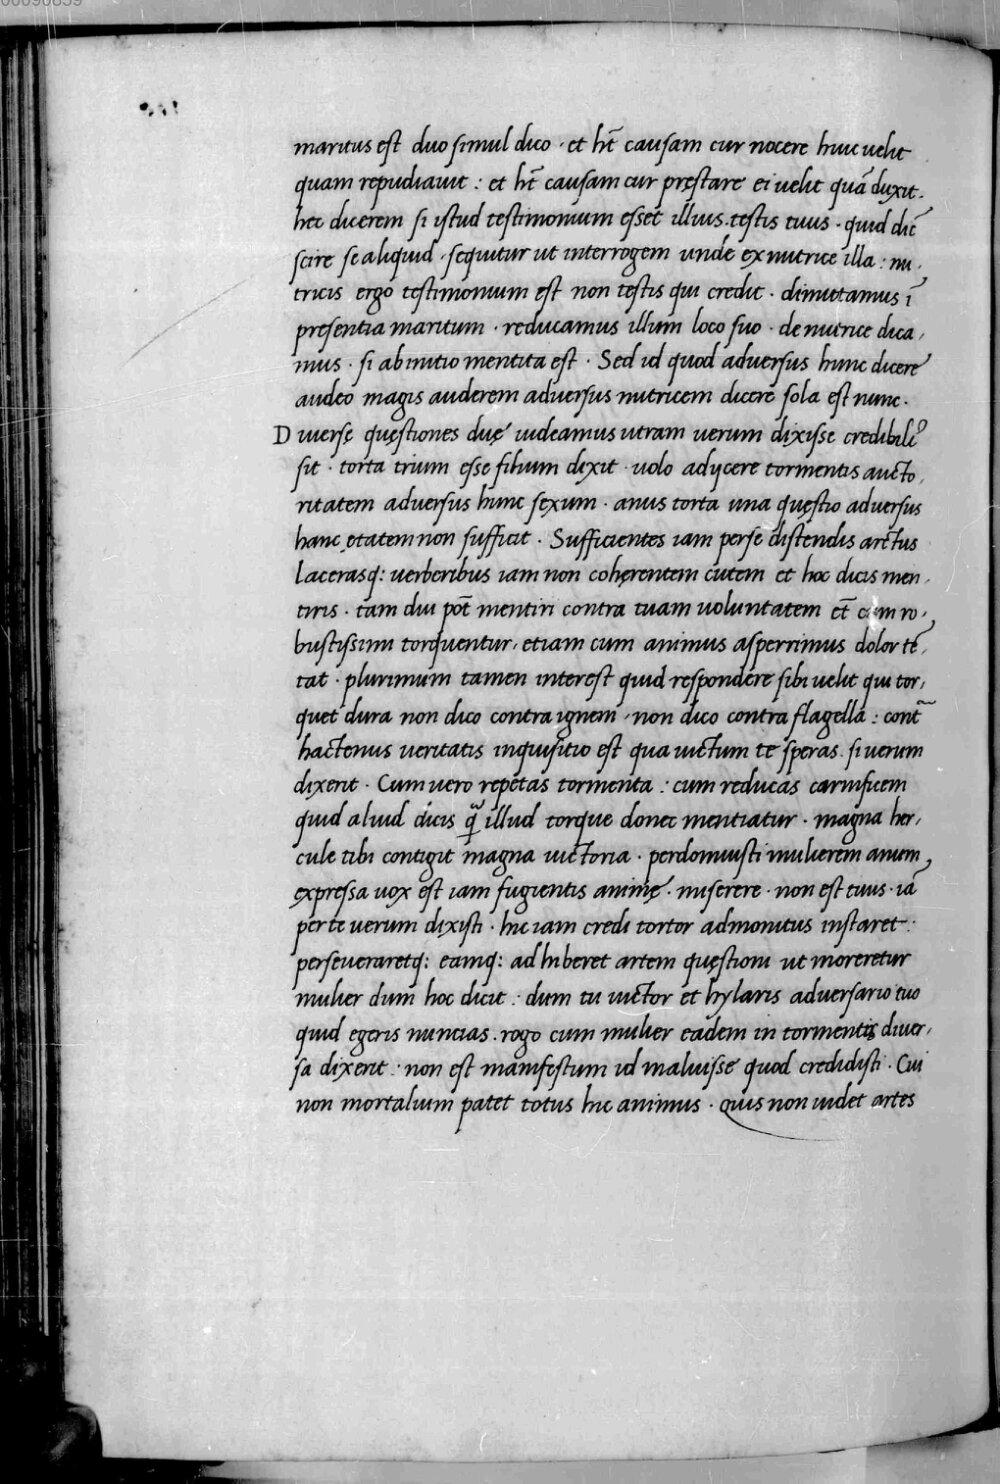 00090859
maritus est duo simul dico · et ht̄ causam cur nocere huic uelit
quam repudiauit : et ht̄ causam cur pręstare ei uelit quā duxit.
hec dicerem si istud testimonium esset illius. testis tuus · quid dic̄
scire se aliquid · sequitur ut interrogem unde ex nutrice illa : nu,
tricis ergo testimonium est non testis qui credit · dimittamus ī
presentia maritum · reducamus illum loco suo · de nutrice dica,
mus · si ab initio mentita est · Sed id quod aduersus hunc dicere
audeo magis auderem aduersus nutricem dicere sola est nunc.
D iuersę quęstiones duę uideamus utram uerum dixisse credibiliꝰ
sit · torta trium esse filium dixit · uolo adijcere tormentis aucto,
ritatem aduersus hunc sexum · anus torta una quęstio aduersus
hanc ętatem non sufficit · Sufficientes iam perse distendis arctus
lacerasq: uerberibus iam non cohęrentem cutem et hoc dicis men,
tiris · tam diu pōt mentiri contra tuam uoluntatem et̄ cum ro,
bustissimi torquentur, etiam cum animus asperrimus dolor tē,
tat · plurimum tamen interest quid respondere sibi uelit qui tor,
quet dura non dico contra ignem, non dico contra flagella : cont͂
hactenus ueritatis inquisitio est qua uictum te speras. si uerum
dixerit · Cum uero repetas tormenta : cum reducas carnificem
quid aliud dicis q̃ illud torque donec mentiatur · magna her,
cule tibi contigit magna uictoria · perdomuisti mulierem anum,
expressa uox est iam fugientis animę · miserere · non est tuus · iā
per te uerum dixisti · hic iam credi tortor admonitus instaret :
perseueraretq: eamq: adhiberet artem quęstioni ut moreretur
mulier dum hoc dicit : dum tu uictor et hylaris aduersario tuo
quid egeris nuncias · rogo cum mulier eadem in tormentis diuer,
sa dixerit : non est manifestum id maluisse quod credidisti · Cui
non mortalium patet totus hic animus · Quis non uidet artes